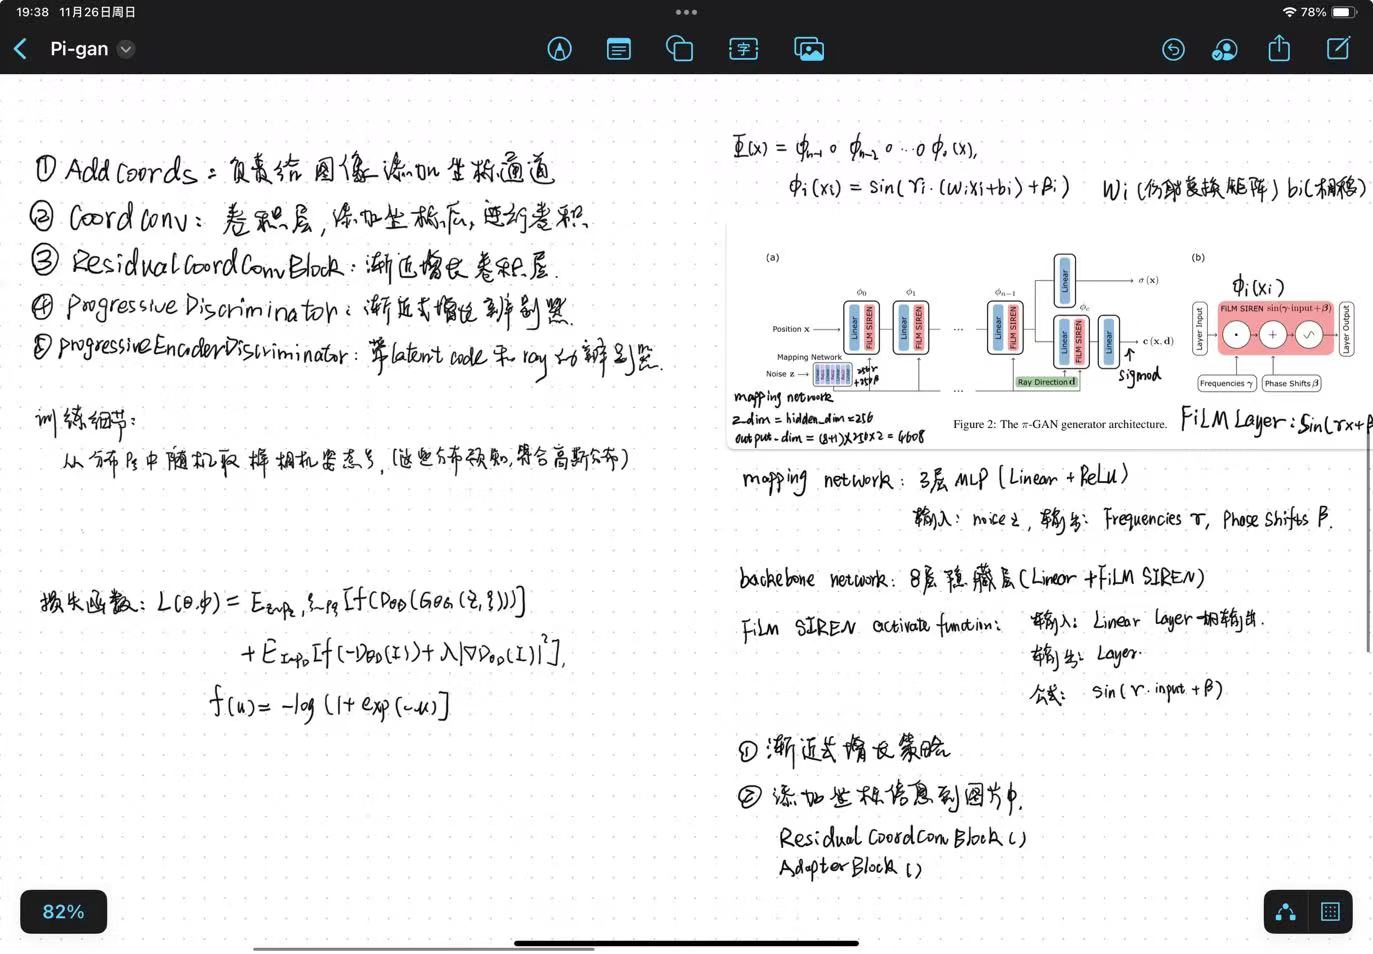 19:38 11月26日周日
78%
Pi-gan
① AddCoords：负责给图像添加坐标通道
② CoordConv：卷积层，添加坐标后，进行卷积
③ ResidualCoordConvBlock：渐近增长卷积层.
④ ProgressiveDiscriminator：渐近式增长辨别器.
⑤ ProgressiveEncoderDiscriminator：带latent code 和 ray 的辨别器.
训练细节：
从分布Pξ中随机取样相机姿态ξ，(这些分布预知，符合高斯分布)
损失函数：L(θ,φ) = E z~Pz, ξ~Pξ [f(DθD(GθG(z,ξ)))]
+ E I~PD [f(-DθD(I)) + λ|∇DθD(I)|²],
f(u) = -log(1+exp(-u)]
Φ(x) = ϕn-1 ∘ ϕn-2 ∘ ⋯∘ ϕ0(x),
ϕi(xi) = sin(γi·(Wixi+bi)+βi) Wi(仿射变换矩阵) bi(相移)
(a)
Position x
ϕ0
Linear
FiLM SIREN
ϕ1
Linear
FiLM SIREN
...
ϕn−1
Linear
FiLM SIREN
Linear
σ(x)
ϕc
Linear
FiLM SIREN
Linear
c(x, d)
sigmod
Mapping Network
Noise z
256γ
+256β
...
Ray Direction d
mapping network
z_dim = hidden_dim = 256
output_dim = (8+1)×256×2 = 4608
(b)
ϕi(xi)
FiLM SIREN sin(γ·input+β)
Layer Input
Layer Output
Frequencies γ
Phase Shifts β
Figure 2: The π-GAN generator architecture.
FiLM Layer：sin(γx+β
mapping network：3层MLP (Linear + ReLu)
输入：noise z，输出：Frequencies γ, Phase Shifts β.
backebone network：8层隐藏层(Linear +FiLM SIREN)
FiLM SIREN activate function：输入：Linear Layer 的输出.
输出：Layer.
公式：sin(γ·input+β)
① 渐近式增长策略
② 添加坐标信息到图片中.
ResidualCoordConvBlock()
AdapterBlock()
82%